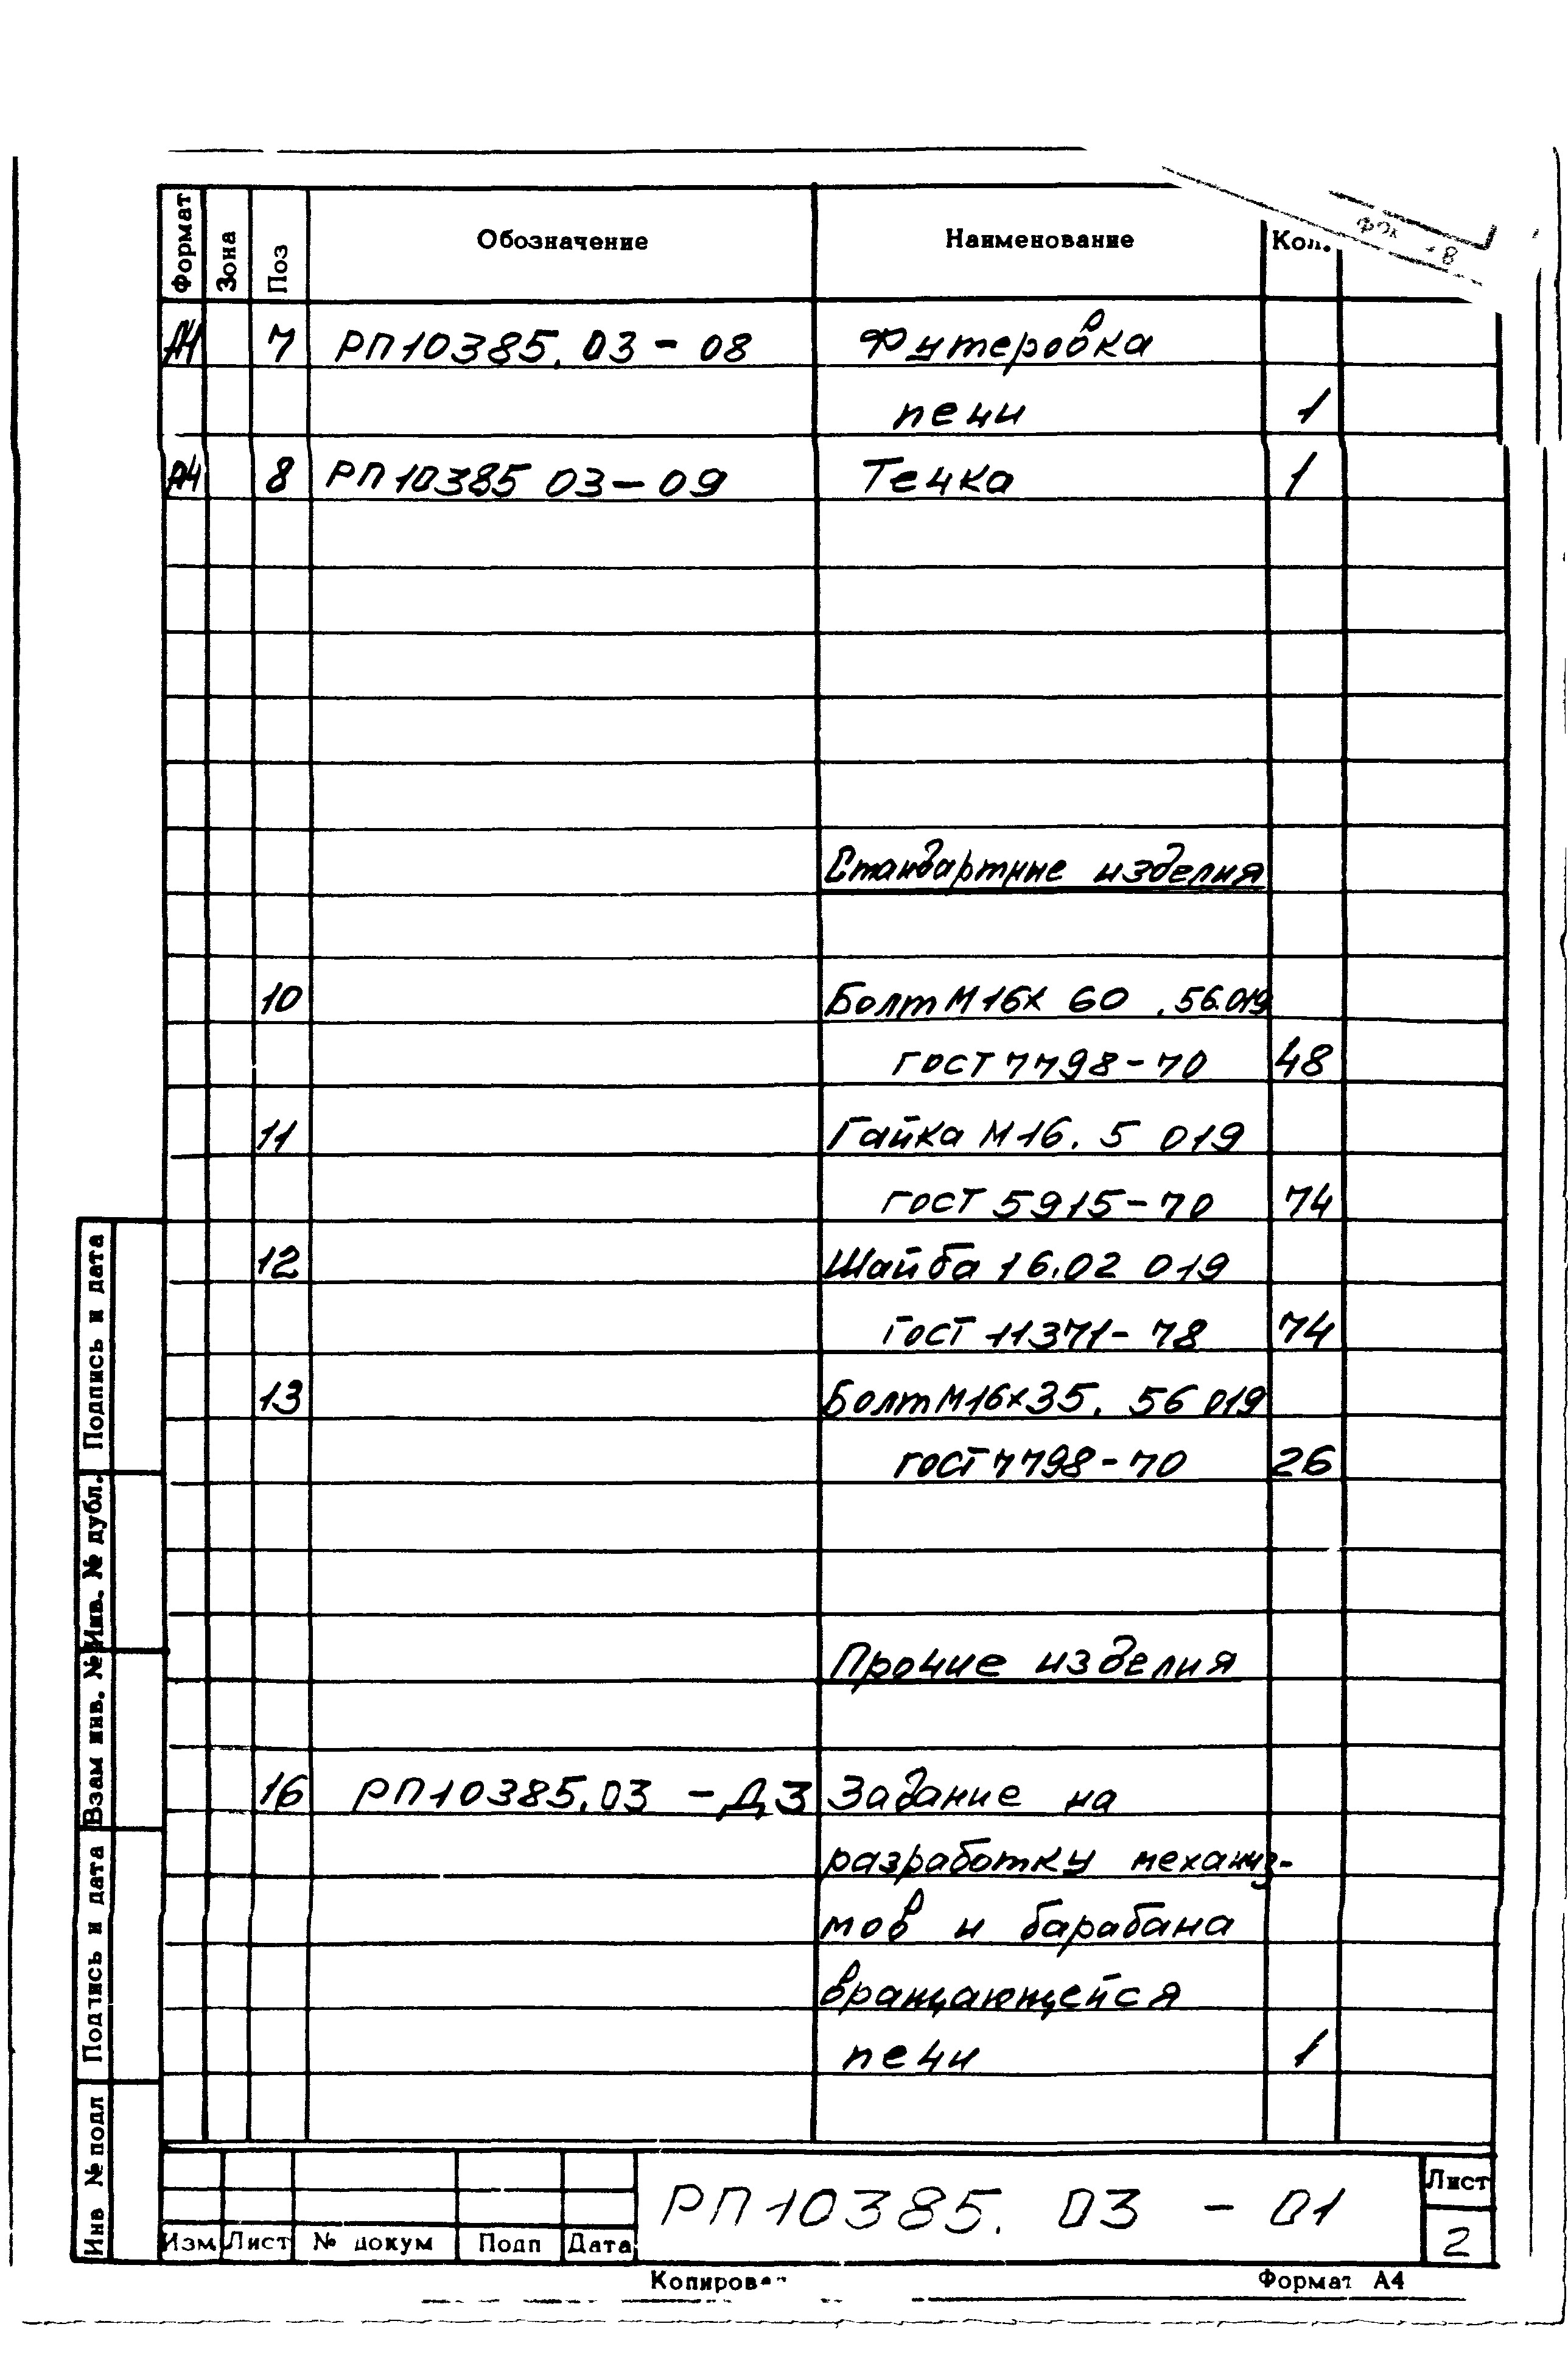 Формат Зона Поз Обозначение Наименование Кол.
А1 7 РП10385.03-08 Футеровка
печи 1
А4 8 РП10385 03-09 Течка 1
Стандартные изделия
10 Болт М16х 60 .56.019
ГОСТ 7798-70 48
11 Гайка М16. 5 019
ГОСТ 5915-70 74
12 Шайба 16.02 019
ГОСТ 11371-78 74
13 Болт М16х35. 56 019
ГОСТ 7798-70 26
Прочие изделия
16 РП10385.03 -ДЗ Задание на
разработку механиз-
мов и барабана
вращающейся
печи 1
Подпись и дата
Инв. № дубл.
Взам инв. №
Подпись и дата
Инв № подл
Изм Лист № докум Подп Дата
РП10385. 03 - 01
Лист
2
Копировал
Формат А4